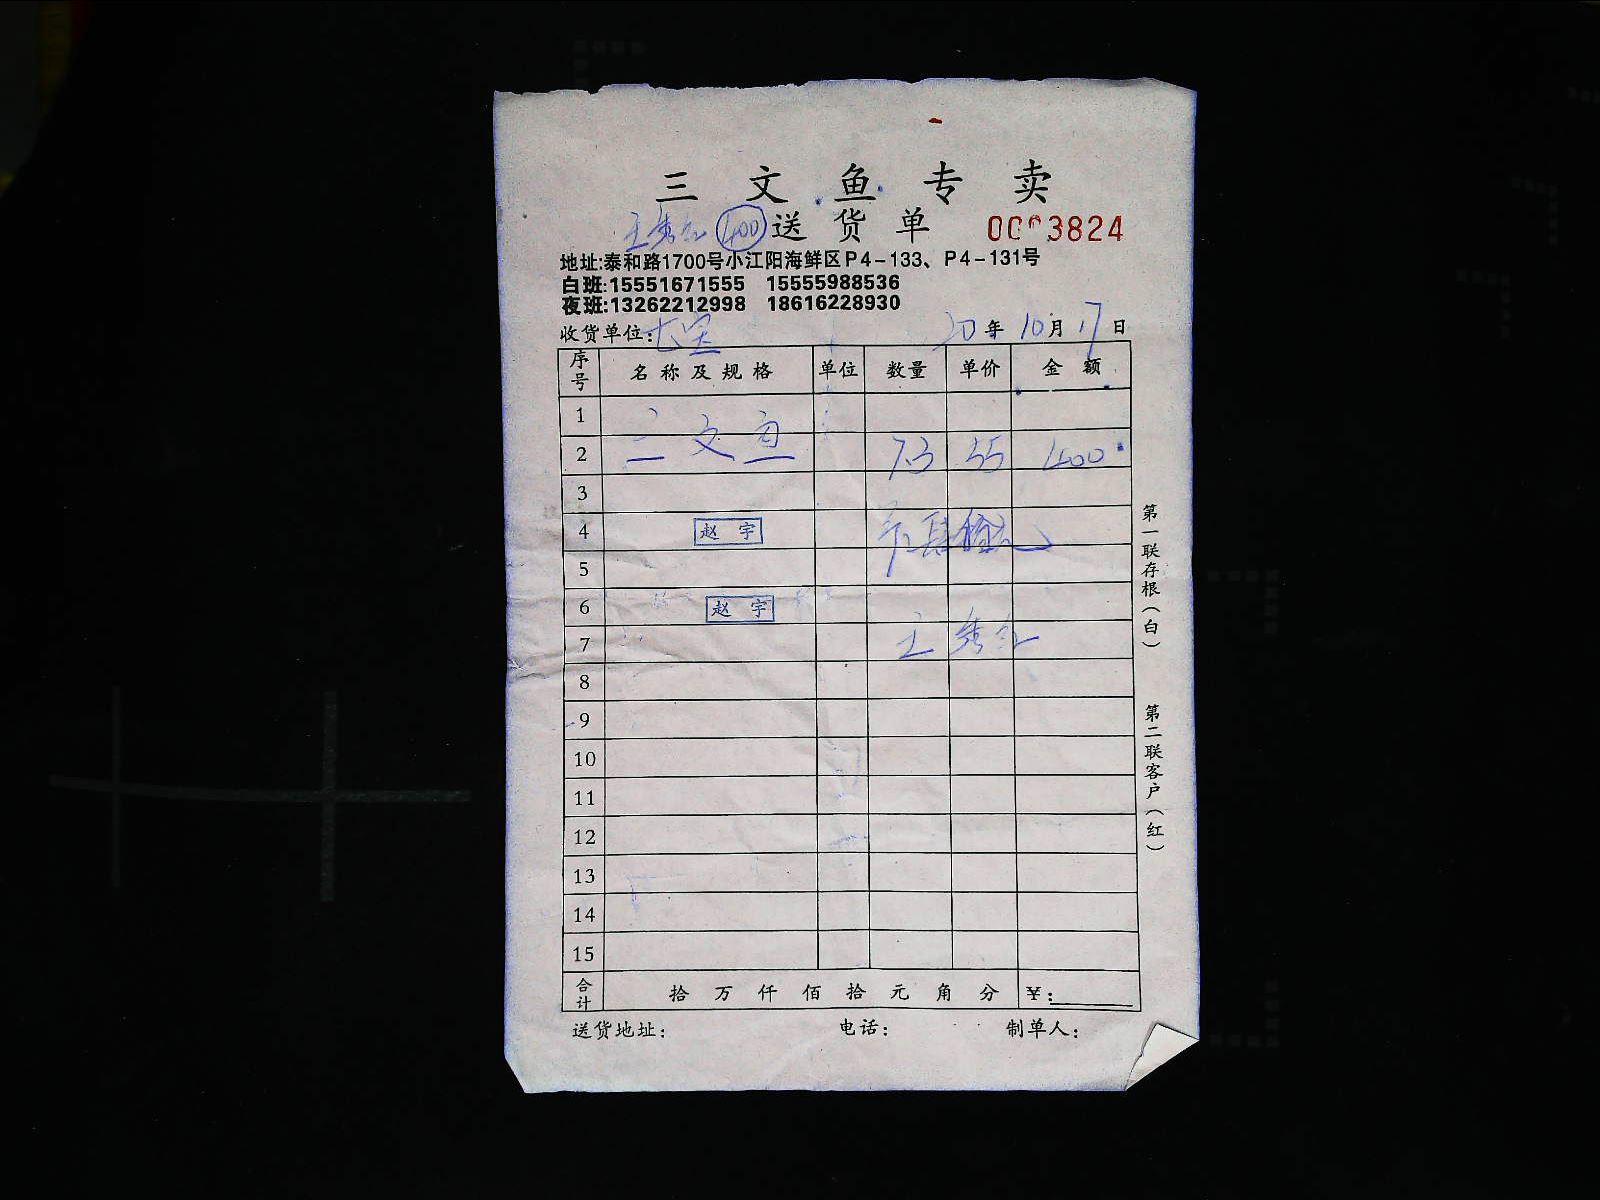 三文鱼专卖
400 送货单
地址:泰和路1700号小江阳海鲜区P4-133、P4-131号
白班:15551671555 15555988536
夜班:13262212998 18616228930
收货单位: 20年10月17日
序号 名称及规格 单位 数量 单价 金额
1
2 三文鱼 7.3 55 400
3
4 赵宇
5
6 赵宇
7
8
9
10
11
12
13
14
15
合计 拾万仟佰拾元角分 ¥:
送货地址: 电话: 制单人:
第一联存根(白)
第二联客户(红)